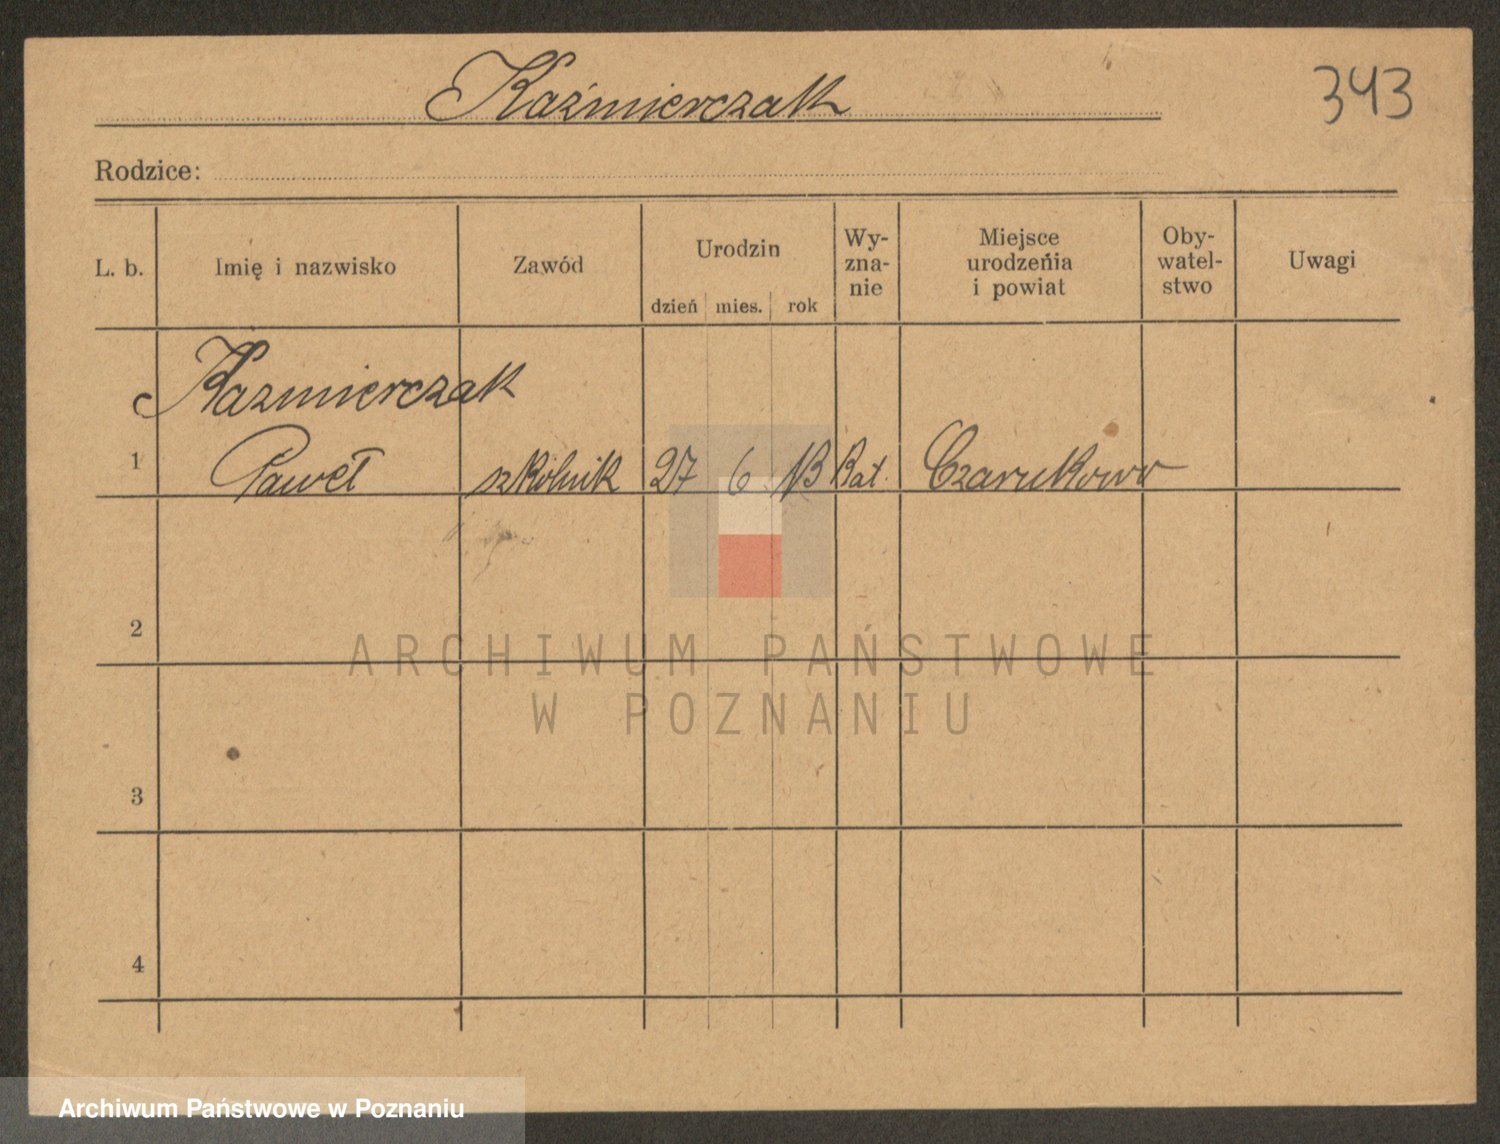 Kaźmierczak
343
Rodzice:
L. b.
Imię i nazwisko
Zawód
Urodzin
dzień mies. rok
Wy-
zna-
nie
Miejsce
urodzeńia
i powiat
Oby-
watel-
stwo
Uwagi
Kazmierczak
1 Paweł szkolnik 27 6 13 Kat. Czarnkowo
2
3
4
ARCHIWUM PAŃSTWOWE
W POZNANIU
Archiwum Państwowe w Poznaniu